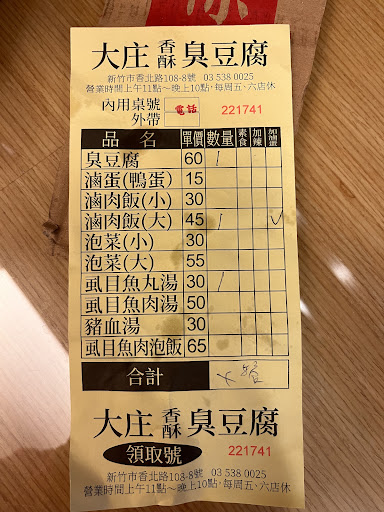 大庄香酥臭豆腐
新竹市香北路108-8號 03 538 0025
營業時間上午11點~晚上10點,每周五.六店休
內用桌號
外帶 電話 221741
品名 單價 數量 素食 加辣 加滷蛋
臭豆腐 60 1
滷蛋(鴨蛋) 15
滷肉飯(小) 30
滷肉飯(大) 45 1 ✓
泡菜(小) 30
泡菜(大) 55
虱目魚丸湯 30 1
虱目魚肉湯 50
豬血湯 30
虱目魚肉泡飯 65
合計
大庄香酥臭豆腐
領取號 221741
新竹市香北路108-8號 03 538 0025
營業時間上午11點~晚上10點,每周五.六店休